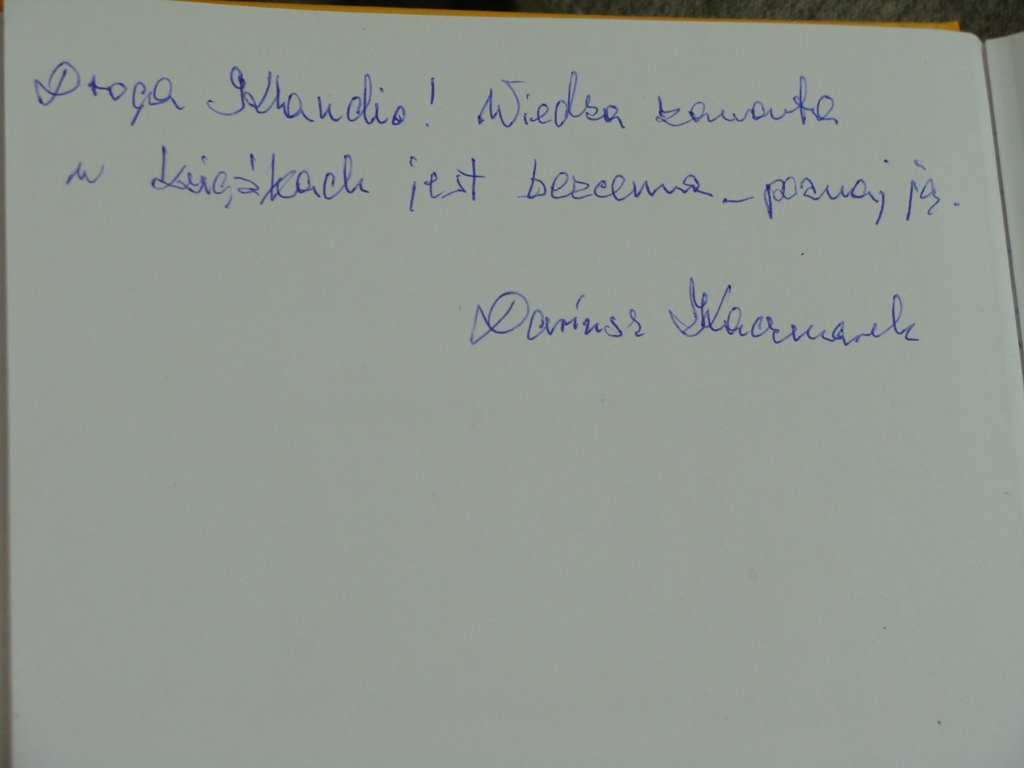 Droga Klaudio! Wiedza zawarta
w książkach jest bezcenna - poznaj ją.
Dariusz Kaczmarek